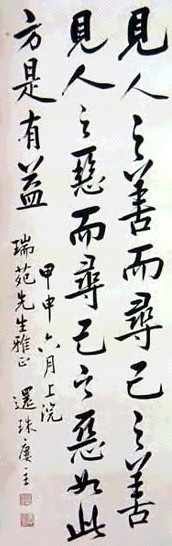 見人之善而尋己之善
見人之惡而尋己之惡如此
方是有益
甲申六月上浣
瑞苑先生雅正
還珠廔主